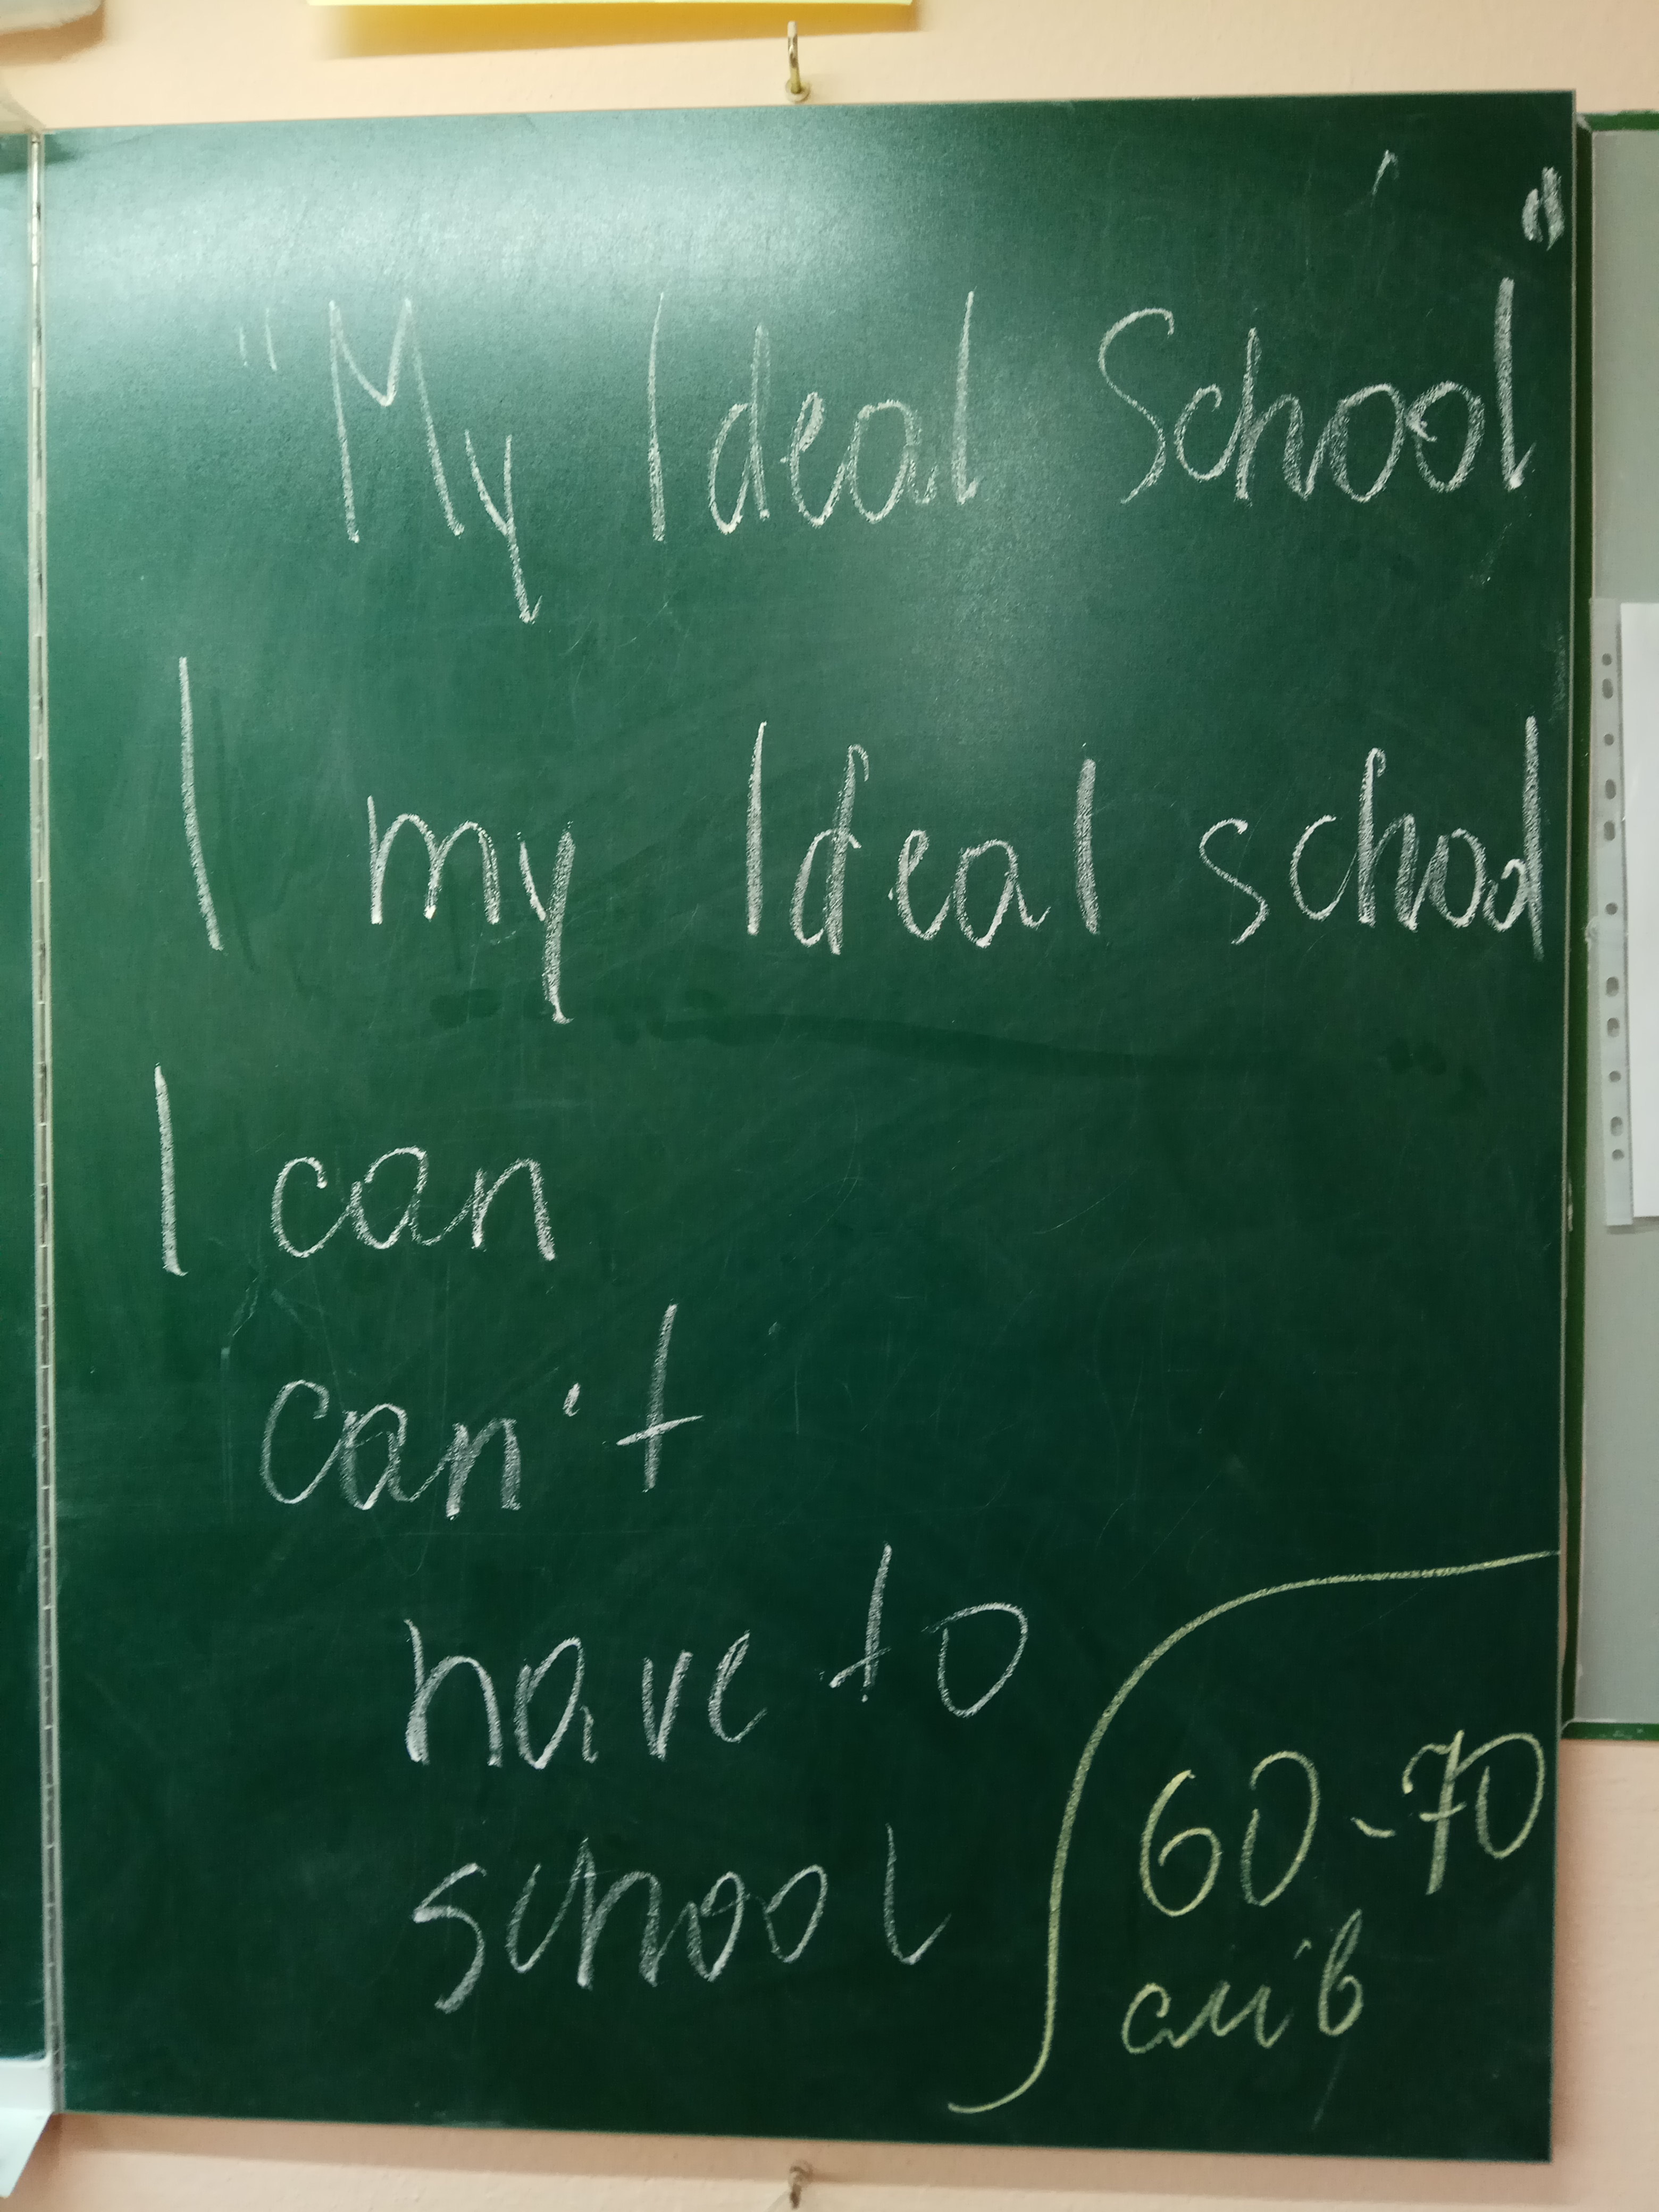 "My Ideal School"
I my Ideal school
I can
can't
have to
school
60-70
слів